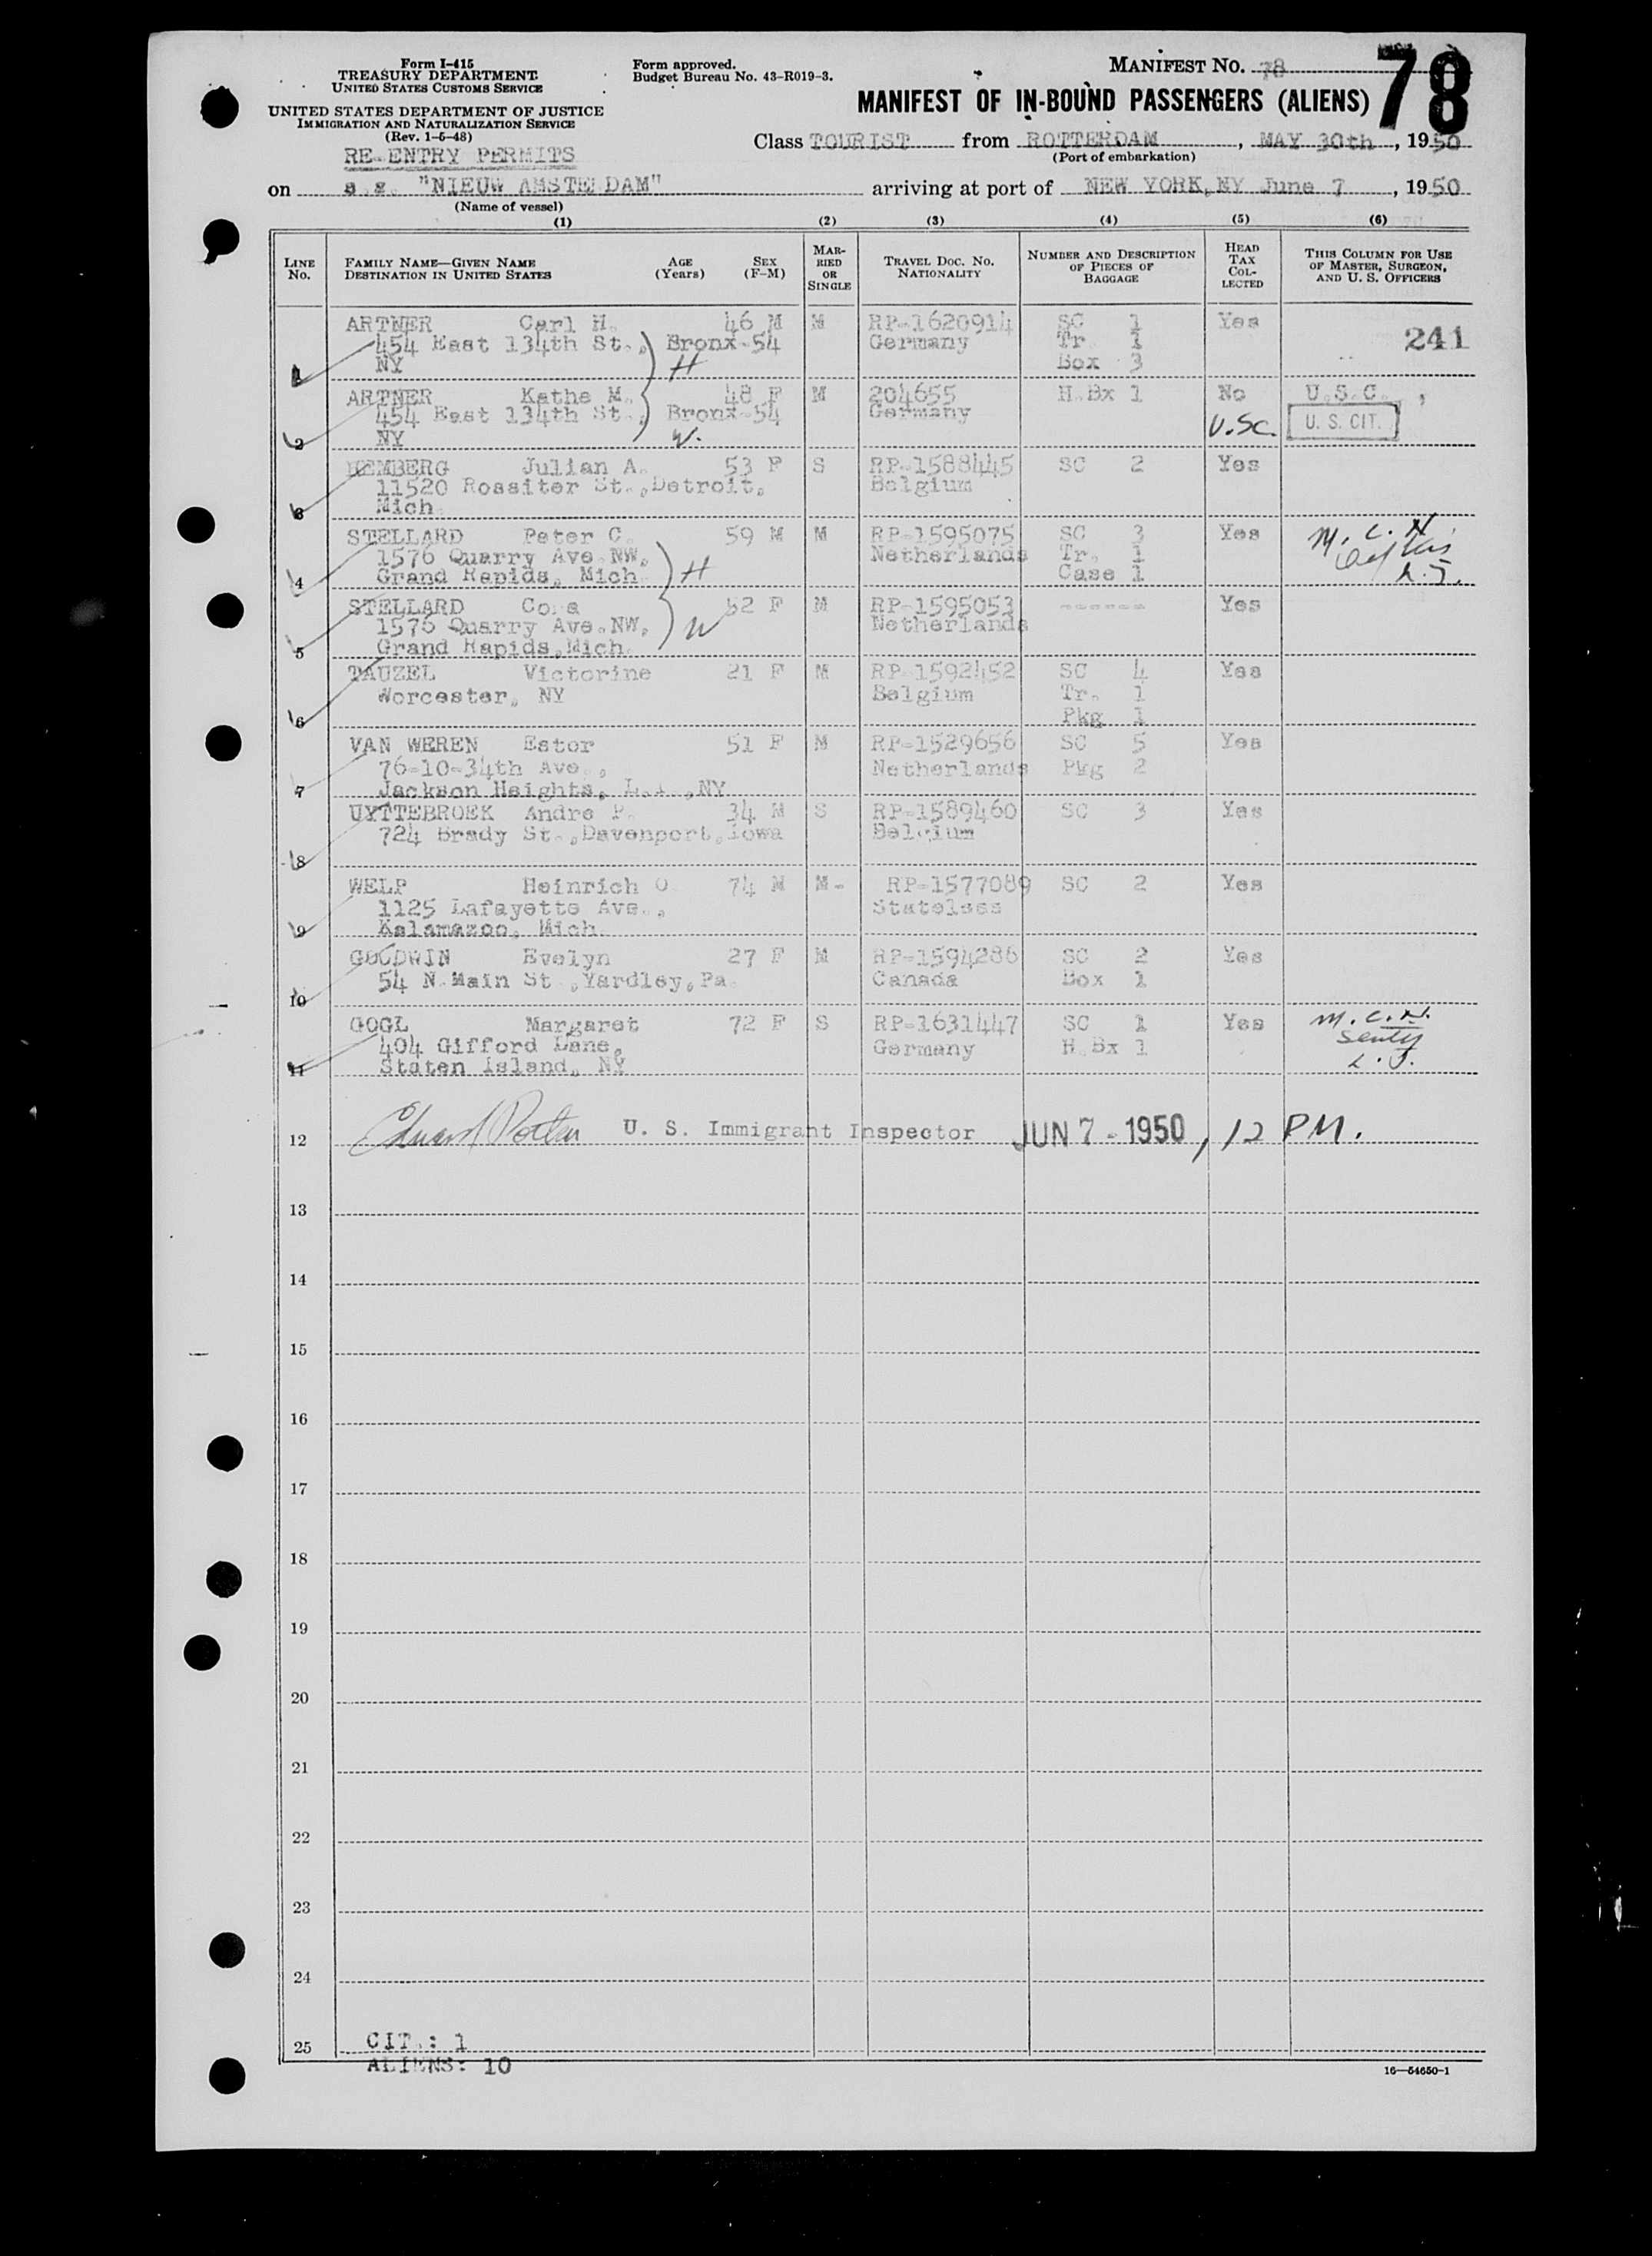 Form I-415
TREASURY DEPARTMENT
UNITED STATES CUSTOMS SERVICE
UNITED STATES DEPARTMENT OF JUSTICE
IMMIGRATION AND NATURALIZATION SERVICE
(Rev. 1-6-48)
RE-ENTRY PERMITS
Form approved.
Budget Bureau No. 43-R019-3.
MANIFEST NO. 78
78
MANIFEST OF IN-BOUND PASSENGERS (ALIENS)
Class TOURIST from ROTTERDAM, MAY 30th, 1950
(Port of embarkation)
on s.s. "NIEUW AMSTERDAM" arriving at port of NEW YORK, NY June 7, 1950
(Name of vessel)
(1) (2) (3) (4) (5) (6)
LINE NO. FAMILY NAME—GIVEN NAME DESTINATION IN UNITED STATES AGE (Years) SEX (F-M) MARRIED OR SINGLE TRAVEL DOC. NO. NATIONALITY NUMBER AND DESCRIPTION OF PIECES OF BAGGAGE HEAD TAX COLLECTED THIS COLUMN FOR USE OF MASTER, SURGEON, AND U. S. OFFICERS
ARTNER Carl H. 46 M M RP-1620914 SC 1 Yes
454 East 134th St., Bronx-54 Germany Tr 1 241
1 NY H Box 3
ARTNER Kathe M. 48 F M 204655 H.Bx 1 No U.S.C.
454 East 134th St., Bronx-54 Germany U.SC. U. S. CIT.
2 NY W.
HEMBERG Julian A. 53 F S RP-1588445 SC 2 Yes
11520 Rossiter St., Detroit, Belgium
3 Mich
STELLARD Peter C. 59 M M RP-1595075 SC 3 Yes M. C. H.
1576 Quarry Ave.NW, Netherlands Tr. 1
4 Grand Rapids, Mich H Case 1 L.J.
STELLARD Cora 52 F M RP-1595053 ------ Yes
1576 Quarry Ave.NW, W Netherlands
5 Grand Rapids, Mich.
TAUZEL Victorine 21 F M RP-1592452 SC 4 Yes
Worcester, NY Belgium Tr. 1
6 Pkg 1
VAN WEREN Ester 51 F M RP-1529656 SC 5 Yes
76-10-34th Ave., Netherlands Pkg 2
7 Jackson Heights, L.I., NY
UYTTEBROEK Andre P. 34 M S RP-1589460 SC 3 Yes
724 Brady St., Davenport, Iowa Belgium
8
WELP Heinrich O 74 M M- RP-1577089 SC 2 Yes
1125 Lafayette Ave., Stateless
9 Kalamazoo, Mich.
GOODWIN Evelyn 27 F M RP-1594286 SC 2 Yes
54 N.Main St., Yardley, Pa Canada Box 1
10
GOGL Margaret 72 F S RP-1631447 SC 1 Yes M. C. H.
404 Gifford Lane, Germany H.Bx 1
11 Staten Island, NY L. J.
12 U. S. Immigrant Inspector JUN 7 - 1950, 12 PM.
13
14
15
16
17
18
19
20
21
22
23
24
25 CIT.: 1
ALIENS: 10
16—54650-1